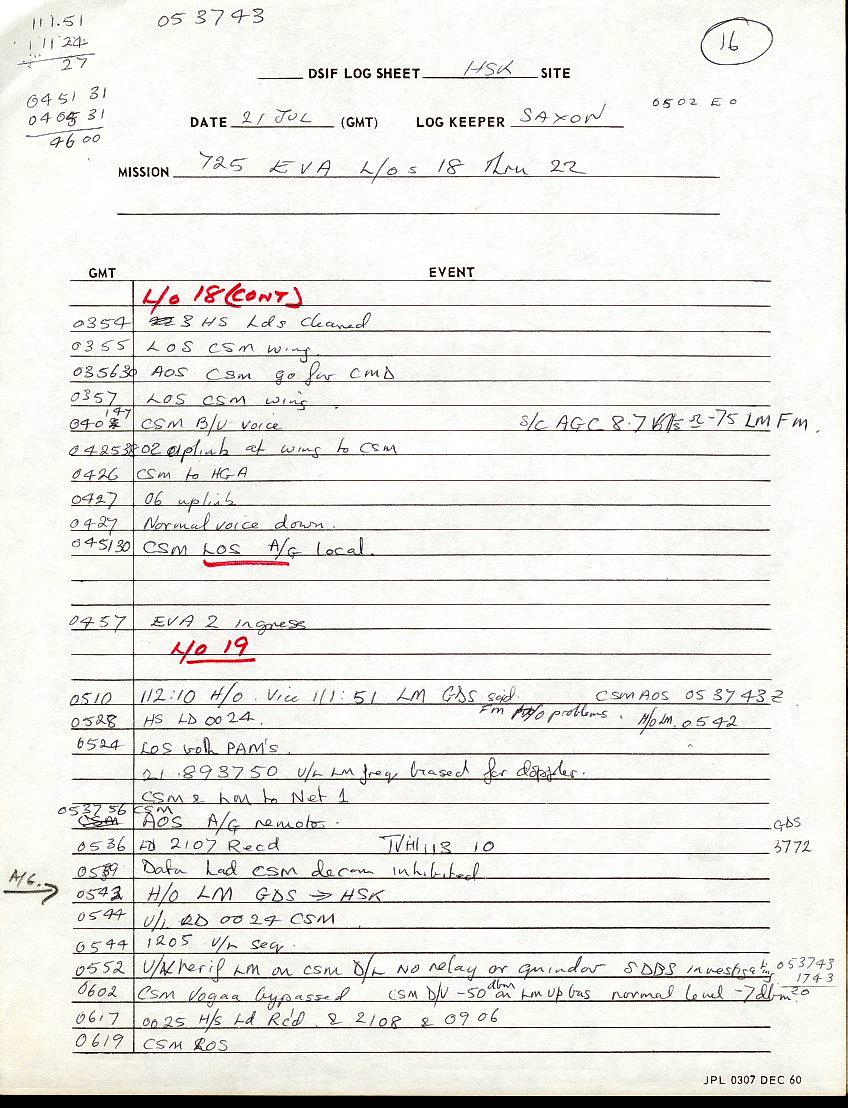 111.51
111 24
27
053743
16
DSIF LOG SHEET HSK SITE
045131
040531
4600
0502 E0
DATE 21 JUL (GMT) LOG KEEPER SAXON
MISSION 725 EVA L/os 18 Thru 22
GMT EVENT
L/O 18 (CONT)
0354 3 HS Lds cleaned
0355 LOS CSM wing.
035630 AOS CSM go for CMD
0357 LOS CSM wing
CSM B/U voice S/C AGC 8.7 -75 LM Fm.
02 uplink at wing to CSM
0426 CSM to HGA
0427 06 uplink
0427 Normal voice down.
045130 CSM LOS A/G local.
0457 EVA 2 ingress
L/O 19
0510 112:10 H/O. Vice 111:51 LM GDS said. CSM AOS 053743Z
0528 HS LD 0024. Fm problems. H/O LM. 0542
0524 LOS both PAM's.
21.893750 U/L LM freq biased for doppler.
CSM & LM to Net 1
053756 CSM
AOS A/G remotes. GDS
0536 LD 2107 Recd 113 10 3772
0539 Data Lad CSM decom inhibited
A/G → 0542 H/O LM GDS → HSK
0544 U/L 0024 CSM
0544 1205 U/L seq.
0552 LM on CSM D/L No relay or quindar SDDS investigating 053743
1743
0602 CSM Vogaa bypassed CSM D/V -50 dbm on LM up bas normal level -7 dbm. 20
0617 0025 H/S Ld Rec'd. & 2108 & 0906
0619 CSM LOS
JPL 0307 DEC 60